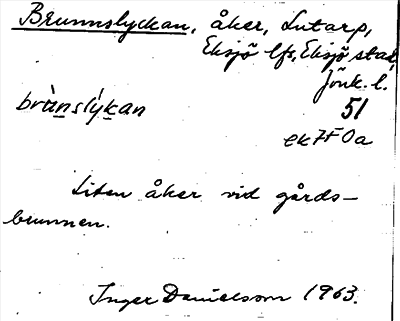 Brunnslyckan, åker, Lutarp,
Eksjö lfs, Eksjö stad,
Jönk. l.
brùnslỳkan
51
ek 7F 0a
Liten åker vid gårds-
brunnen.
Inger Danielsson 1963.